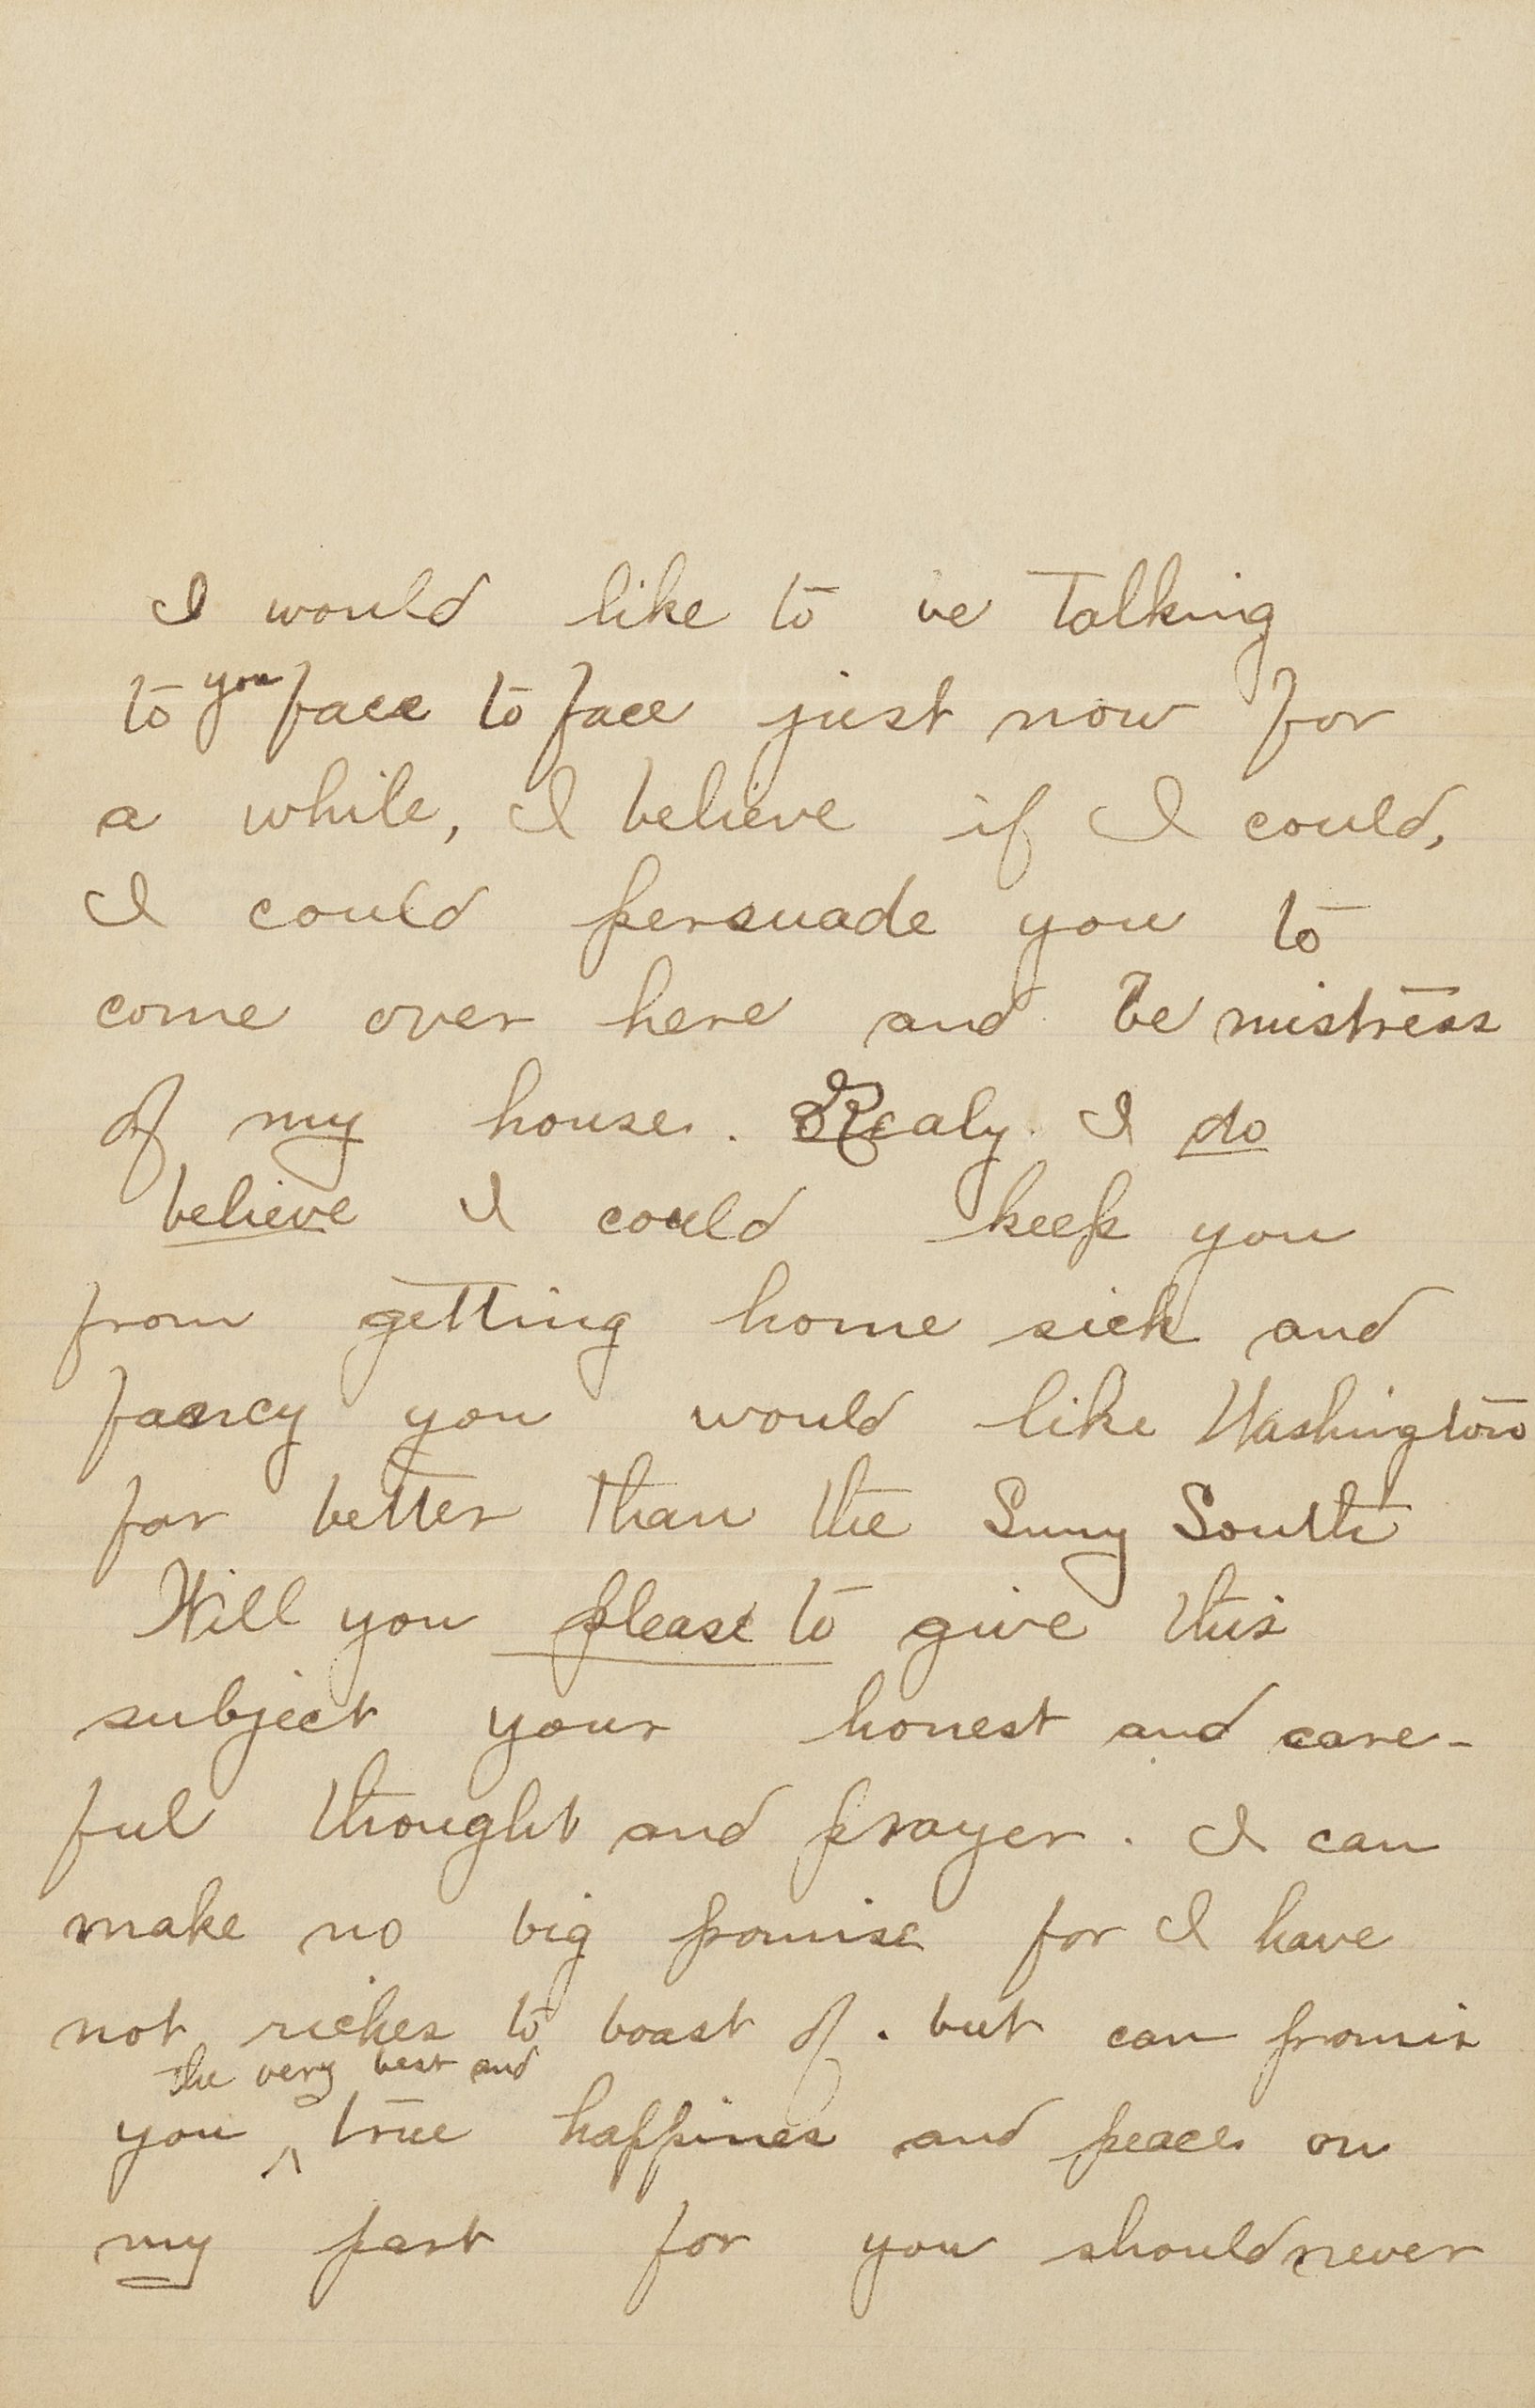 I would like to be talking
to you face to face just now for
a while, I believe if I could,
I could persuade you to
come over here and be mistress
of my house. Realy I do
believe I could keep you
from getting home sick and
fancy you would like Washington
far better than the Suny South
Will you please to give this
subject your honest and care-
ful thought and prayer. I can
make no big promise for I have
not riches to boast of. but can promis
the very best and
you ^ true happines and peace on
my part for you should never